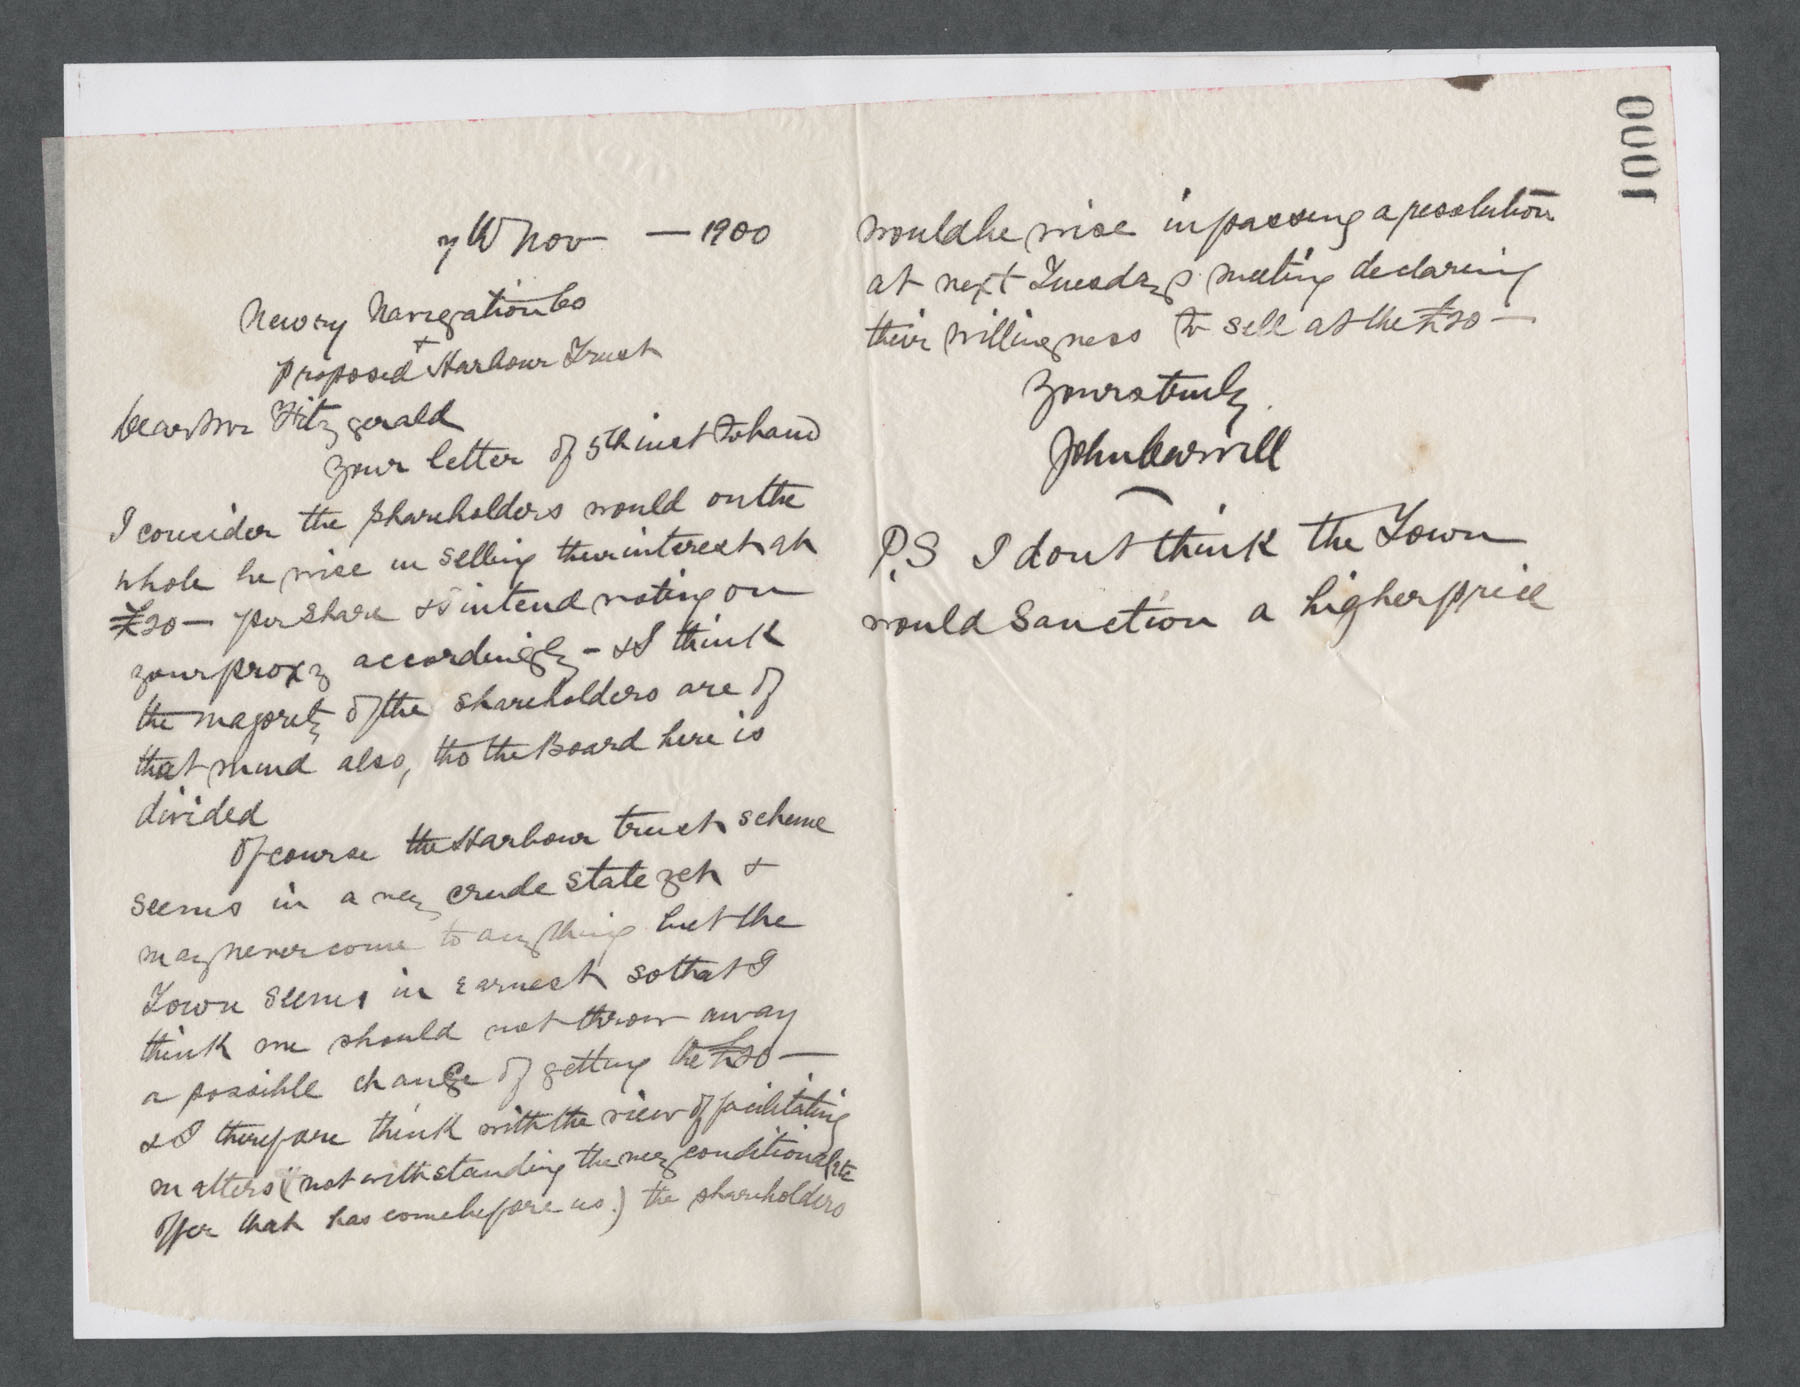 7th Nov — 1900
Newry Navigation Co
+
proposed Harbour Trust
Dear Mr Fitzgerald
Your letter of 5th inst to hand
I consider the shareholders would on the
whole be wise in selling their interest at
£20 — per share & intend voting on
your proxy accordingly - & I think
the majority of the shareholders are of
that mind also, tho the Board here is
divided
Of course the Harbour trust scheme
seems in a very crude state yet &
may never come to anything but the
Town seems in earnest so that I
think we should not throw away
a possible chance of getting the £20 —
& I therefore think with the view of facilitating
matters (notwithstanding the very conditional
offer that has come before us.) the shareholders
would be wise in passing a resolution
at next Tuesdays meeting declaring
their willingness to sell at the £20 —
Yours truly.
John Carvill
P.S I dont think the Town
would Sanction a higher price
0001